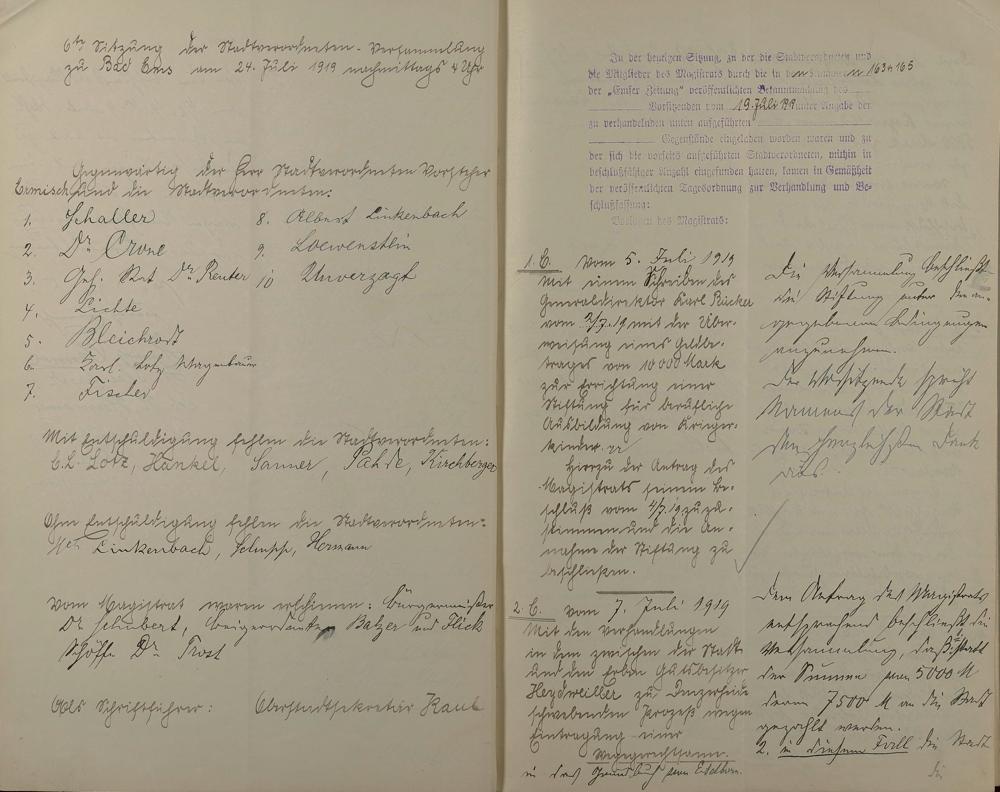 6te Sitzung der Stadtverordneten-Versammlung
zu Bad Ems am 24. Juli 1919 nachmittags 4 Uhr
Gegenwärtig der Herr Stadtverordneten Vorsteher
Ermisch und die Stadtverordneten:
1. Schaller
2. Dr Crone
3. Geh. Rat Dr Reuter
4. Lichte
5. Bleichrodt
6. Karl Lotz Wagenbauer
7. Fischer
8. Albert Linkenbach
9. Loewenstein
10 Unverzagt
Mit Entschuldigung fehlen die Stadtverordneten:
C. L. Lotz, Hankel, Sanner, Pahde, Kirchberger
Ohne Entschuldigung fehlen die Stadtverordneten:
Linkenbach, Schupp, Hermann
Vom Magistrat waren erschienen: Bürgermeister
Dr Schubert, Beigeordneten Balzer und Flick
Schöffe Dr Trost
Als Schriftführer: Oberstadtsekretär Kaul
In der heutigen Sitzung, zu der die Stadtverordneten und
die Mitglieder des Magistrats durch die in den Nummern 163 u 165
der „Emser Zeitung“ veröffentlichten Bekanntmachung des
Vorsitzenden vom 19. Juli 19 unter Angabe der
zu verhandelnden unten aufgeführten
Gegenstände eingeladen worden waren und zu
der sich die vorseits aufgeführten Stadtverordneten, mithin in
beschlußfähiger Anzahl eingefunden hatten, kamen in Gemäßheit
der veröffentlichten Tagesordnung zur Verhandlung und Be-
schlußfassung:
Vorlagen des Magistrats:
1. C. Vom 5. Juli 1919
Mit einem Schreiben des
Generaldirektor Karl Rücker
vom 2/7.19 mit der Über-
weisung eines Geldbe-
trages von 10 000 Mark
zur Errichtung einer
Stiftung für berufliche
Ausbildung von Krieger-
kinder.
Hierzu der Antrag des
Magistrats seinem Be-
schluß vom 4/7.19 zuzu-
stimmen und die An-
nahme der Stiftung zu
beschließen.
Die Versammlung beschließt
die Stiftung unter den an-
gegebenen Bedingungen
anzunehmen.
Der Vorsitzende spricht
Namens der Stadt
den herzlichsten Dank
aus.
2. C. Vom 7. Juli 1919
Mit den Verhandlungen
in dem zwischen der Stadt
und den Erben Gutsbesitzer
Heydweiller zu Denzerheide
schwebenden Prozeß wegen
Eintragung einer
Wegegerechtsam
in das Grundbuch von
Dem Antrag des Magistrats
entsprechend beschließt die
Versammlung, daß 1. statt
der Summe von 5000 M
deren 7500 M an die Stadt
gezahlt werden.
2. in diesem Fall die Stadt
die